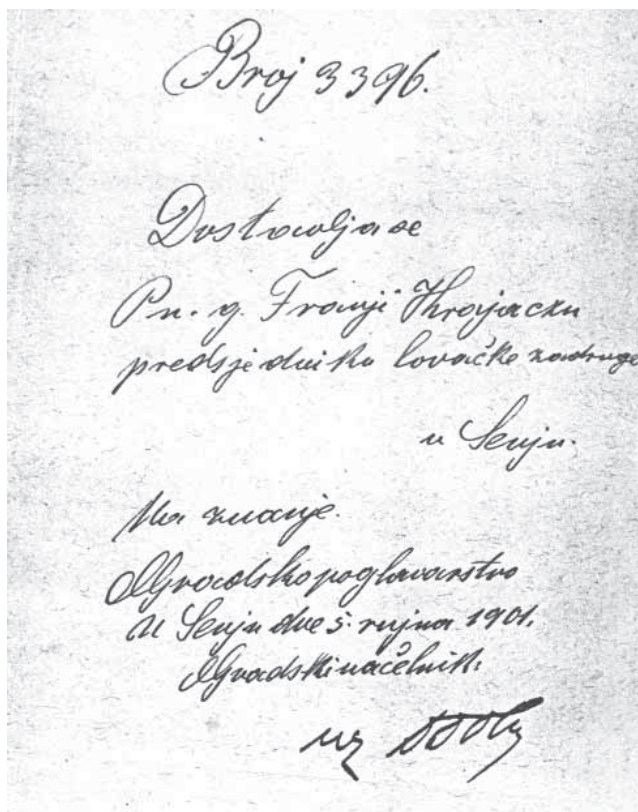 Broj 3396.
Dostavlja se
Pn. g. Franji Krajaczu
predsjedniku lovačke zadruge
u Senju.
Na znanje.
Gradsko poglavarstvo
U Senju dne 5. rujna 1901.
Gradski načelnik: